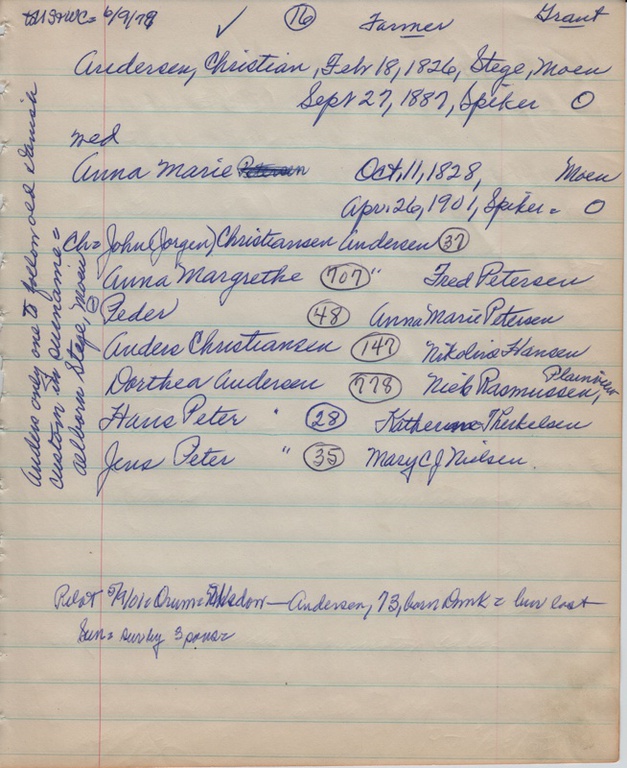 6/9/78 ✓ (16) Farmer Grant
Andersen, Christian, Feb 18, 1826, Stege, Moen
Sept 27, 1887, Spiker O
wed
Anna Marie Petersen Oct. 11, 1828, Moen
Apr. 26, 1901, Spiker = O
Ch = John (Jorgen) Christiansen Andersen (37)
Anna Margrethe (707) " Fred Petersen
Peder (48) Anna Marie Petersen
Anders Christiansen (147) Nikoline Hansen
Dorthea Andersen (778) Niels Rasmussen, Plainview
Hans Peter " (28) Katherine Therkelsen
Jens Peter " (35) Mary C J Nielsen.
Anders only one to follow old Danish
custom in surname =
all born Stege, Moen
Pilot 5/9/01 = Andersen, 73, born Dmk = bur last
Sun = surv by 3